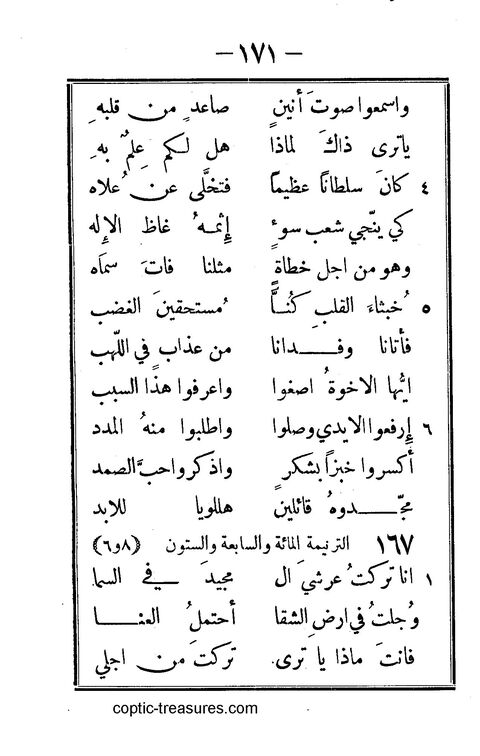 — ١٧١ —
واسمعوا صوتَ أنينٍ صاعدٍ من قلبهِ
ياترى ذاكَ لماذا هل لكم عِلمٌ بهِ
٤ كانَ سلطانًا عظيمًا فتخلَّى عن عُلاه
كي ينّجي شعب سوءٍ إثمهُ غاظ الإله
وهو من اجل خطاةٍ مثلنا فاتَ سماه
٥ خُبثاءَ القلبِ كُنَّا مُستحقينَ الغضب
فأتانا وفدانا من عذاب في اللّهب
ايُّها الاخوةُ اصغوا واعرفوا هذا السبب
٦ إرفعوا الايدي وصلوا واطلبوا منهُ المدد
أكسروا خبزًا بشكرٍ واذكروا حبَّ الصمد
مجّدوهُ قائلين هللويا للابد
١٦٧ الترنيمة المائة والسابعة والستون (٨و٦)
١ انا تركتُ عرشيَ ال مجيدَ في السما
وُجلتُ في ارضِ الشقا أحتملُ العنا
فانتَ ماذا يا ترى تركتَ من اجلي
coptic-treasures.com